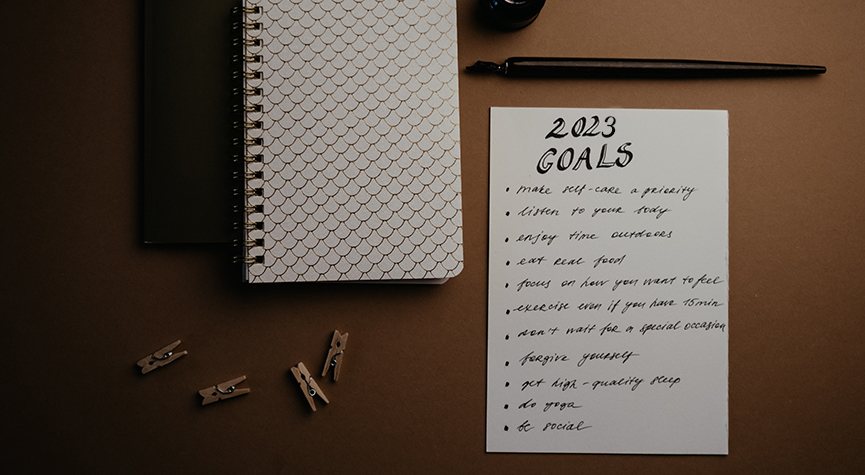 2023
GOALS
• make self-care a priority
• listen to your body
• enjoy time outdoors
• eat real food
• focus on how you want to feel
• exercise even if you have 15 min
• don't wait for a special occasion
• forgive yourself
• get high-quality sleep
• do yoga
• be social